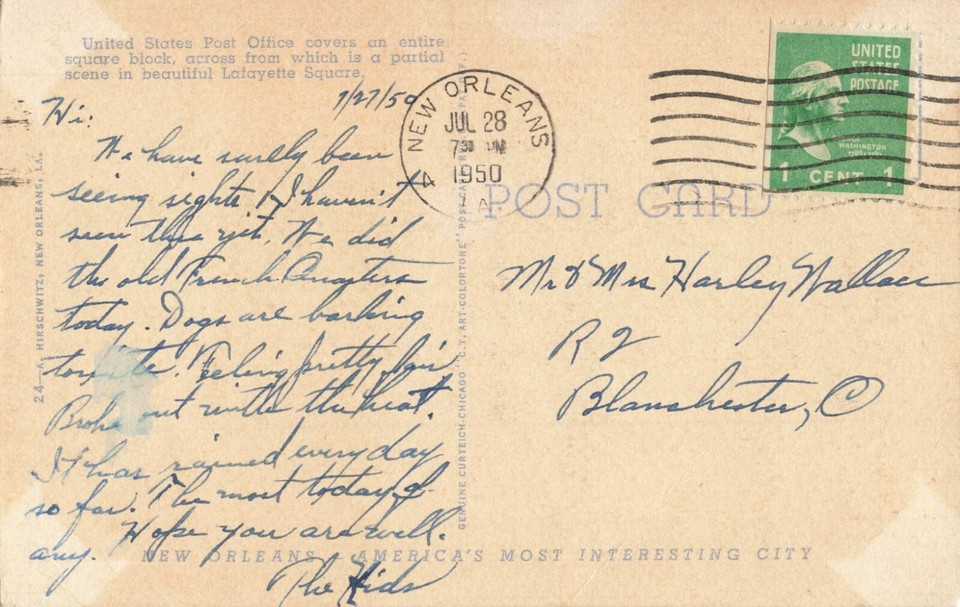 United States Post Office covers an entire
square block, across from which is a partial
scene in beautiful Lafayette Square.
7/27/50
Hi:
We have surely been
seeing sights I haven't
seen this yet. We did
the old French Quarters
today. Dogs are barking
tonite. Feeling pretty fair.
Broke out with the heat.
It has rained every day
so far. The most today of
any. Hope you are well.
The Kids
24—A. HIRSCHWITZ, NEW ORLEANS, LA.
GENUINE CURTEICH-CHICAGO "C.T. ART-COLORTONE" POST CARD
NEW ORLEANS
JUL 28
7 30 PM
1950
LA
4
UNITED
STATES
POSTAGE
WASHINGTON
1789-1797
1 CENT 1
POST CARD
Mr & Mrs Harley Wallace
R 2
Blanchester, O
NEW ORLEANS - AMERICA'S MOST INTERESTING CITY